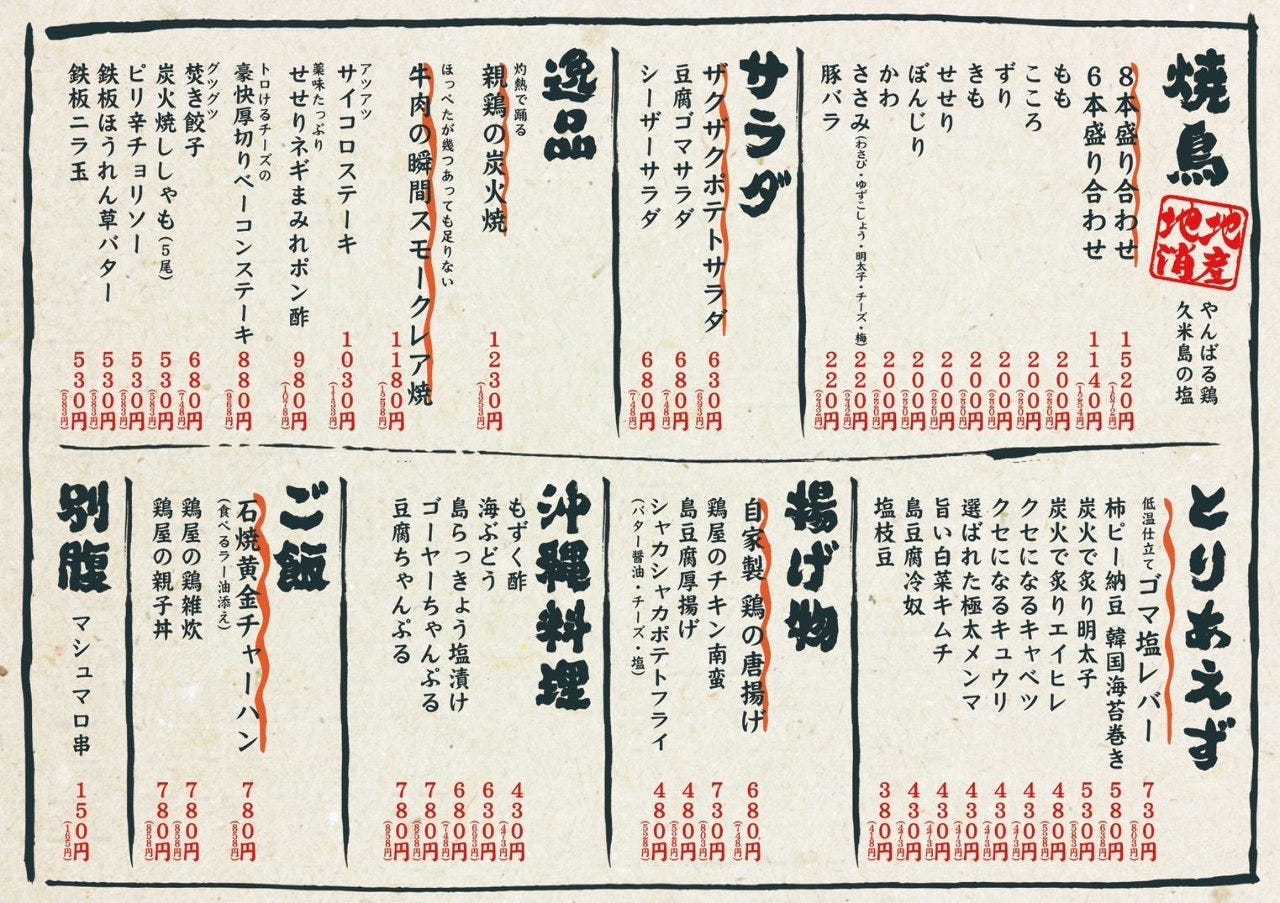 焼鳥
地産地消
やんばる鶏
久米島の塩
8本盛り合わせ 1520円(1672円)
6本盛り合わせ 1140円(1254円)
もも 200円(220円)
こころ 200円(220円)
ずり 200円(220円)
きも 200円(220円)
せせり 200円(220円)
ぼんじり 200円(220円)
かわ 200円(220円)
ささみ(わさび・ゆずこしょう・明太子・チーズ・梅) 220円(242円)
豚バラ 220円(242円)
サラダ
ザクザクポテトサラダ 630円(693円)
豆腐ゴマサラダ 680円(748円)
シーザーサラダ 680円(748円)
逸品
灼熱で踊る
親鶏の炭火焼 1230円(1353円)
ほっぺたが幾つあっても足りない
牛肉の瞬間スモークレア焼 1180円(1298円)
アツアツ
サイコロステーキ 1030円(1133円)
薬味たっぷり
せせりネギまみれポン酢 980円(1078円)
トロけるチーズの
豪快厚切りベーコンステーキ 880円(968円)
グツグツ
焚き餃子 680円(748円)
炭火焼ししゃも(5尾) 530円(583円)
ピリ辛チョリソー 530円(583円)
鉄板ほうれん草バター 530円(583円)
鉄板ニラ玉 530円(583円)
とりあえず
低温仕立て ゴマ塩レバー 730円(803円)
柿ピー納豆 韓国海苔巻き 580円(638円)
炭火で炙り明太子 530円(583円)
炭火で炙りエイヒレ 480円(528円)
クセになるキャベツ 430円(473円)
クセになるキュウリ 430円(473円)
選ばれた極太メンマ 430円(473円)
旨い白菜キムチ 430円(473円)
島豆腐冷奴 430円(473円)
塩枝豆 380円(418円)
揚げ物
自家製 鶏の唐揚げ 680円(748円)
鶏屋のチキン南蛮 730円(803円)
島豆腐厚揚げ 480円(528円)
シャカシャカポテトフライ 480円(528円)
(バター醤油・チーズ・塩)
沖縄料理
もずく酢 430円(473円)
海ぶどう 630円(693円)
島らっきょう塩漬け 680円(748円)
ゴーヤーちゃんぷる 780円(858円)
豆腐ちゃんぷる 780円(858円)
ご飯
石焼黄金チャーハン 780円(858円)
(食べるラー油添え)
鶏屋の鶏雑炊 780円(858円)
鶏屋の親子丼 780円(858円)
別腹
マシュマロ串 150円(165円)